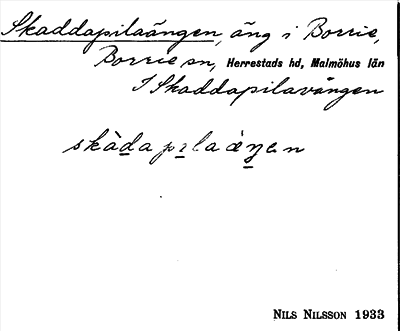 Skaddapilaängen, äng i Borrie,
Borrie sn, Herrestads hd, Malmöhus län
I Skaddapilavängen
skàdapɪlaèŋen
NILS NILSSON 1933